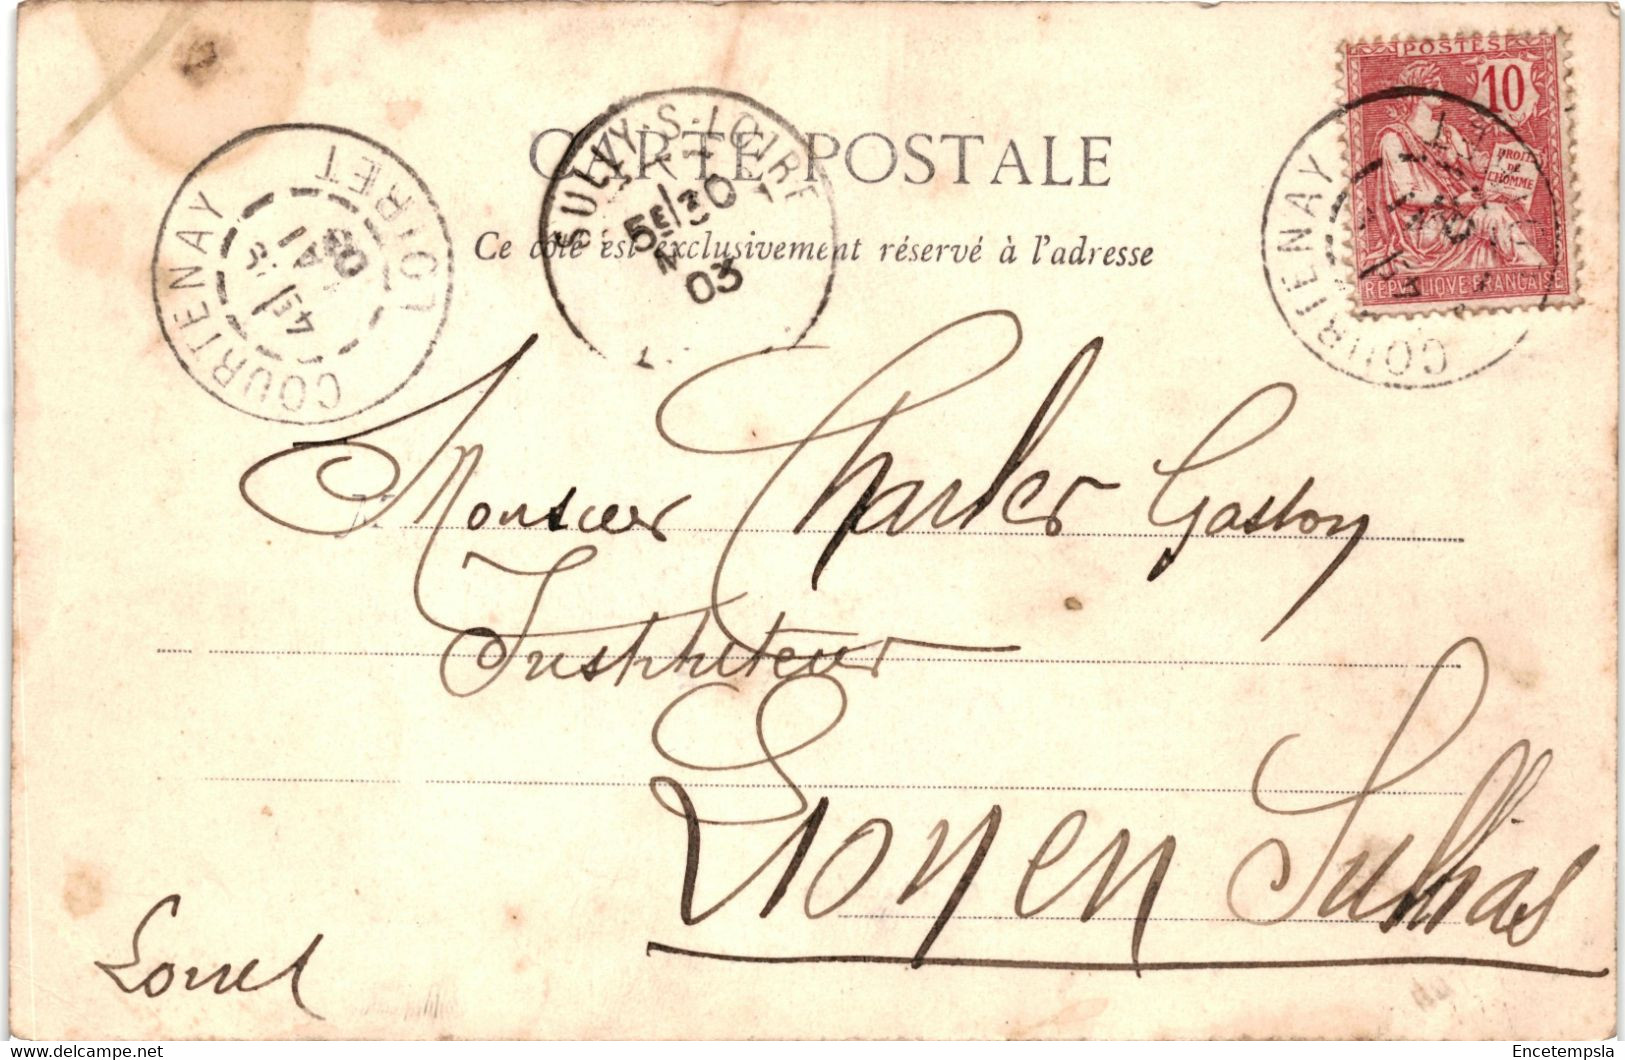 POSTES
10
DROITS
DE
L'HOMME
REPVBLIQVE FRANÇAISE
CARTE POSTALE
Ce côté est exclusivement réservé à l'adresse
COURTENAY LOIRET
4E
MAI
03
SULLY-S-LOIRE
5E/30
03
COURTENAY
Monsieur Charles Gaston
Instituteur
Lion en Sullias
Loiret
Encetempsla